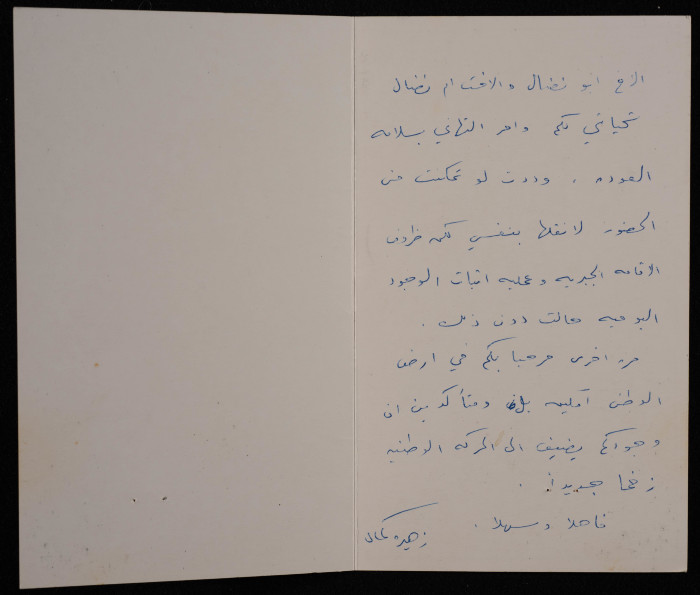 الاخ ابو نضال والاخت ام نضال
تحياتي لكم واحر التهاني بسلامه
العوده ، وددت لو تمكنت من
الحضور لانقلها بنفسي لكن ظروف
الاقامه الجبريه وعمليه اثبات الوجود
اليوميه حالت دون ذلك .
مره اخرى مرحبا بكم في ارض
الوطن آملين ومتأكدين ان
وجودكم يضيف الى الحركه الوطنيه
زخما جديدا .
فاهلا وسهلا .
زهيره كمال